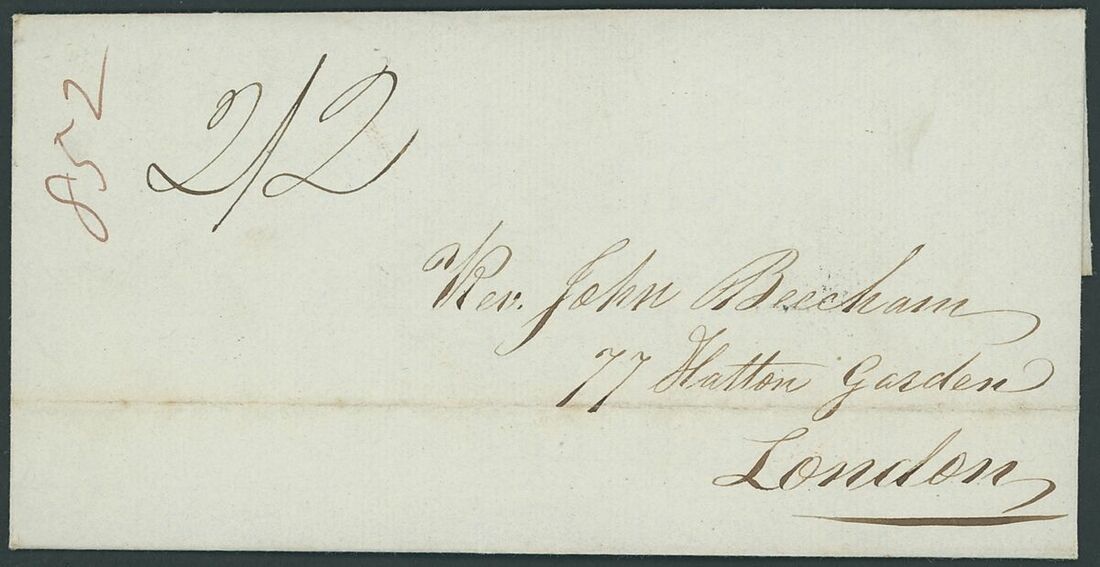 852
2/2
Rev. John Beecham
77 Hatton Garden
London